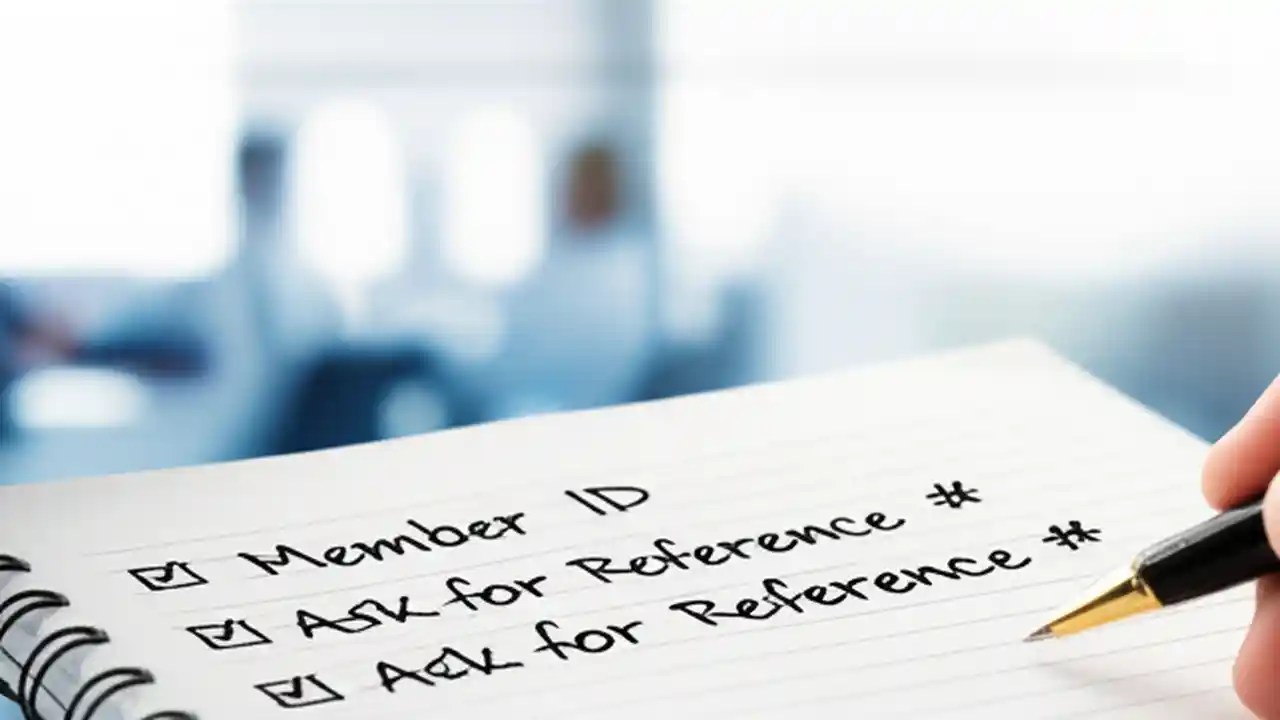 Member ID
Ask for Reference #
Ask for Reference #